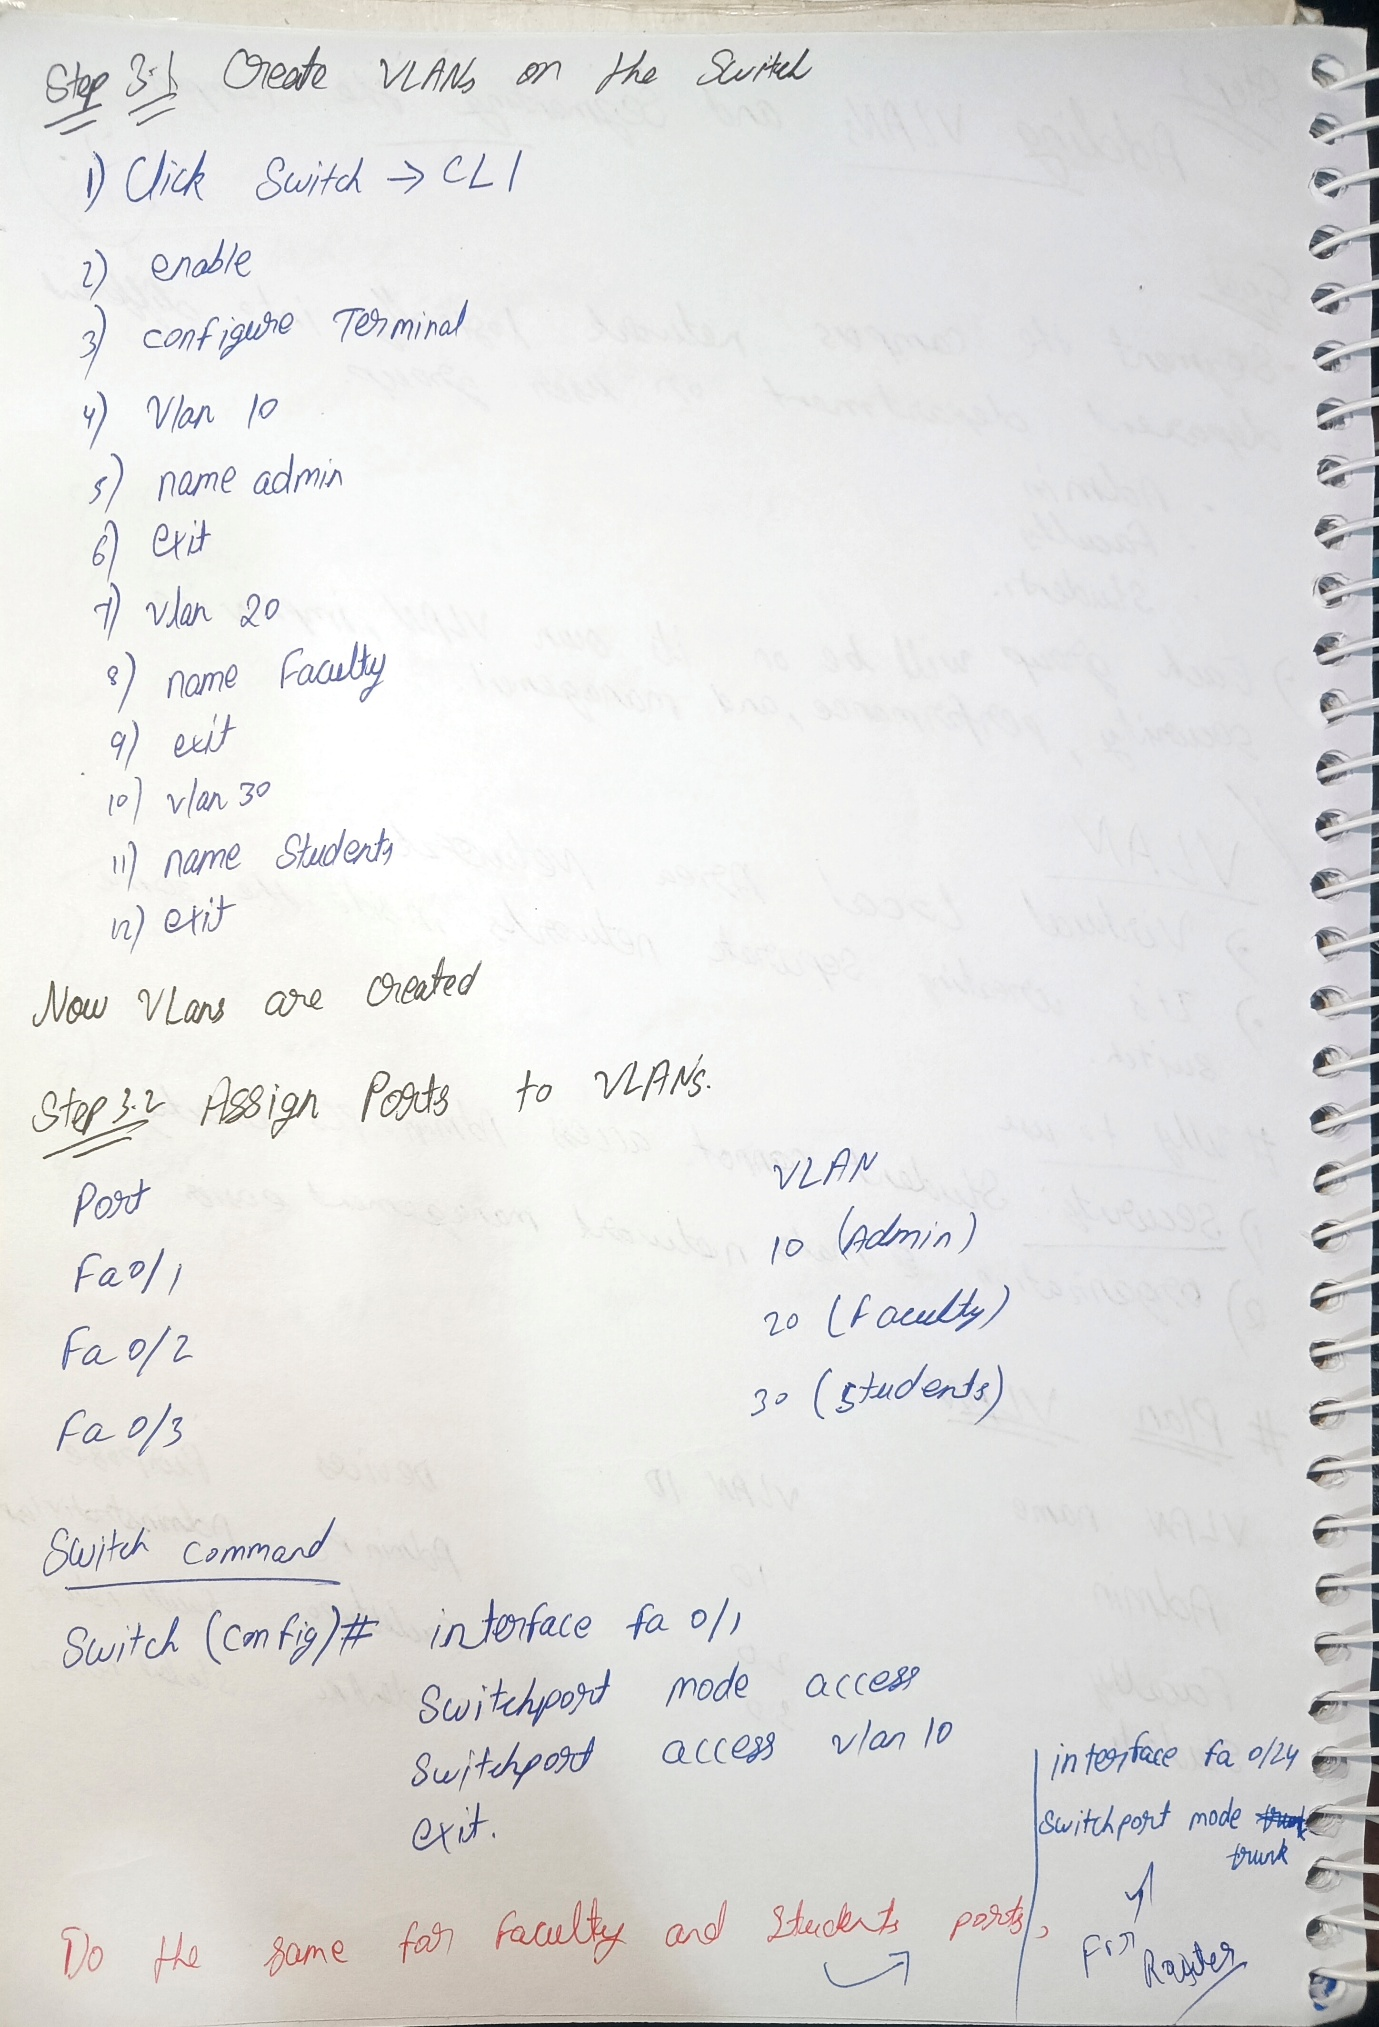 Step 3.1 Create VLANs on the Switch
1) Click Switch → CLI
2) enable
3) configure Terminal
4) Vlan 10
5) name admin
6) exit
7) vlan 20
8) name Faculty
9) exit
10) vlan 30
11) name Students
12) exit
Now VLans are created
Step 3.2 Assign Ports to VLANs.
Port VLAN
Fa0/1 10 (Admin)
Fa 0/2 20 (Faculty)
Fa 0/3 30 (Students)
Switch command
Switch (config)# interface fa 0/1
Switchport mode access
Switchport access vlan 10
exit.
Do the same for Faculty and Students ports,
interface fa 0/24
Switchport mode
trunk
For Router